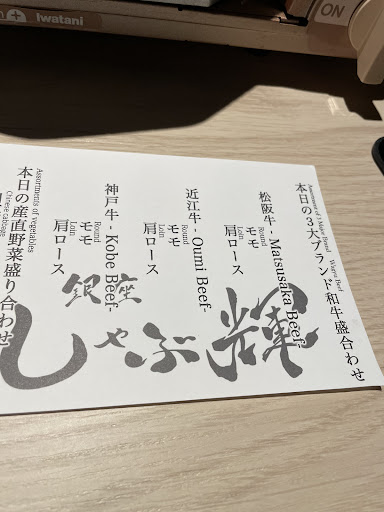 Iwatani
ON
本日の3大ブランド和牛盛合わせ
松阪牛 - Matsusaka Beef-
Round
モモ
Loin
肩ロース
近江牛 - Oumi Beef-
Round
モモ
Loin
肩ロース
神戸牛 - Kobe Beef-
Round
モモ
Loin
肩ロース
Assortments of vegetables
本日の産直野菜盛り合わせ
Chinese cabbage
銀座
しゃぶ輝